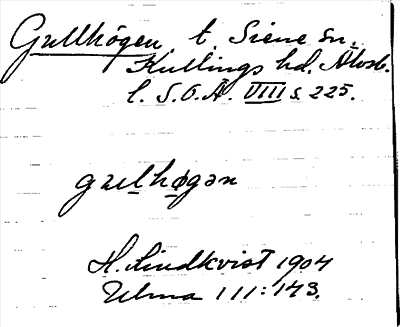 Gullhögen, t. Siene sn.
Kullings hd. Älvsb.
l. S.O.Ä. VIII s. 225.
gɯlhøgən
H. Lindkvist 1904
Ulma 111:143.